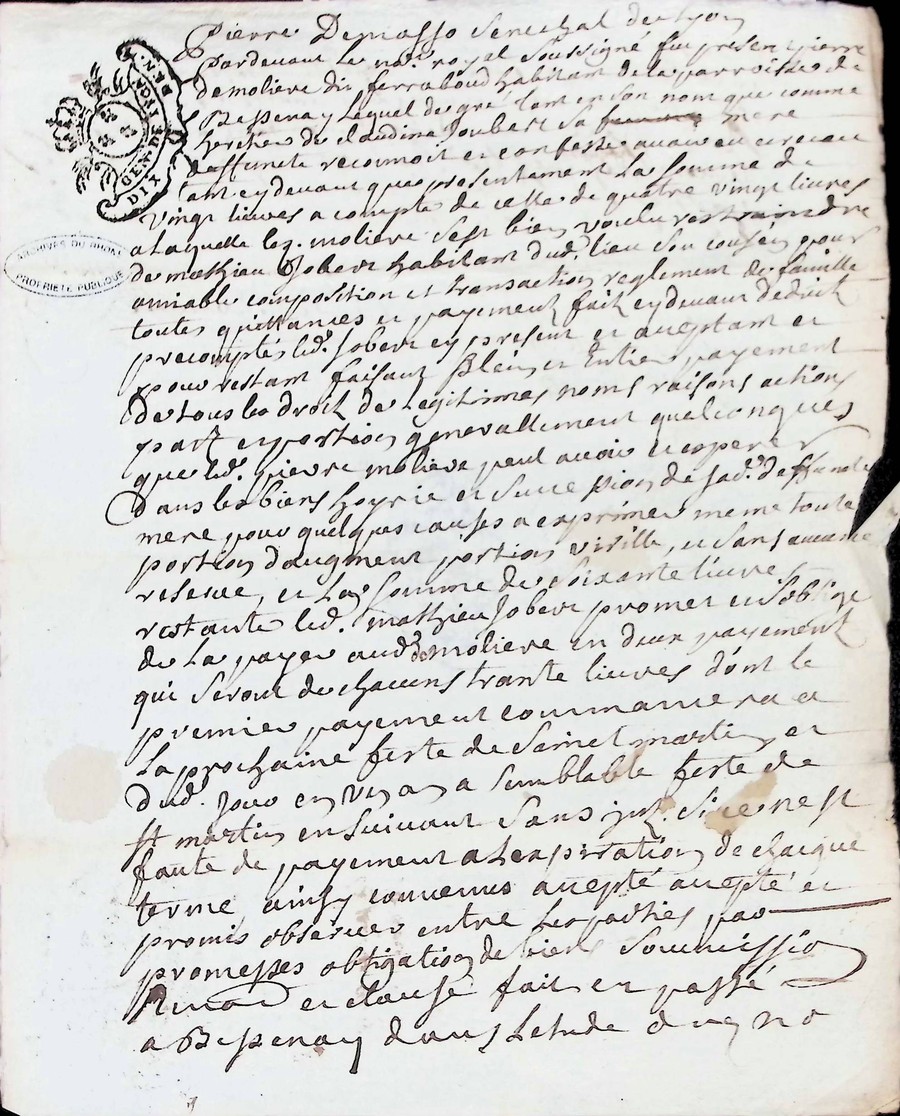 Pierre Demasso Senechal de Lyon
Pardevant le not. royal Soussigné fut present pierre
demoliere dit ferraboud habitant de la parroisse de
Bessenay lequel de gre tant en son nom que comme
heritier de Claudine Joubert sa mere
deffunte reconnoit et confesse avoir eu et receu
tant cy devant que presentement la somme de
vingt livres a compte de celle de quatre vingt livres
a laquelle led. moliere sest bien voulu restraindre
de mathieu Jobert habitant dud. lieu son cousin pour
amiable composition et transaction reglement de famille
toutes quittances et payement fait cy devant de droit
precomptés led. Jobert cy present et acceptant et
pour restant faisant plein et entier payement
de tous les droit de legitimes noms raisons actions
part et portion generallement quelconques
que led. pierre moliere peut avoir et esperer
dans les biens hoyrie et succession de sad. deffunte
mere pour quelques causes a exprimer meme toute
portion daugment portion virille, et sans aucune
reserve, et la somme de soixante livres
restante led. mathieu Jobert promet et soblige
de la payer aud. demoliere en deux payement
qui seront de chacuns trante livres dont le
premier payement commancera a
la prochaine feste de Sainct martin et
dud. jour en un an a semblable feste de
st martin en suivant sans jnt. si ce nest
faute de payement a lexpiration de chaque
terme ainsy convenus accepté accepté et
promis observer entre les parties par
promesses obligation de biens soummission
Renon et clause fait et passé
a Bessenay dans letude du no
GEN. DE LYON
DIX DEN.
ARCHIVES DU RHONE
PROPRIETE PUBLIQUE